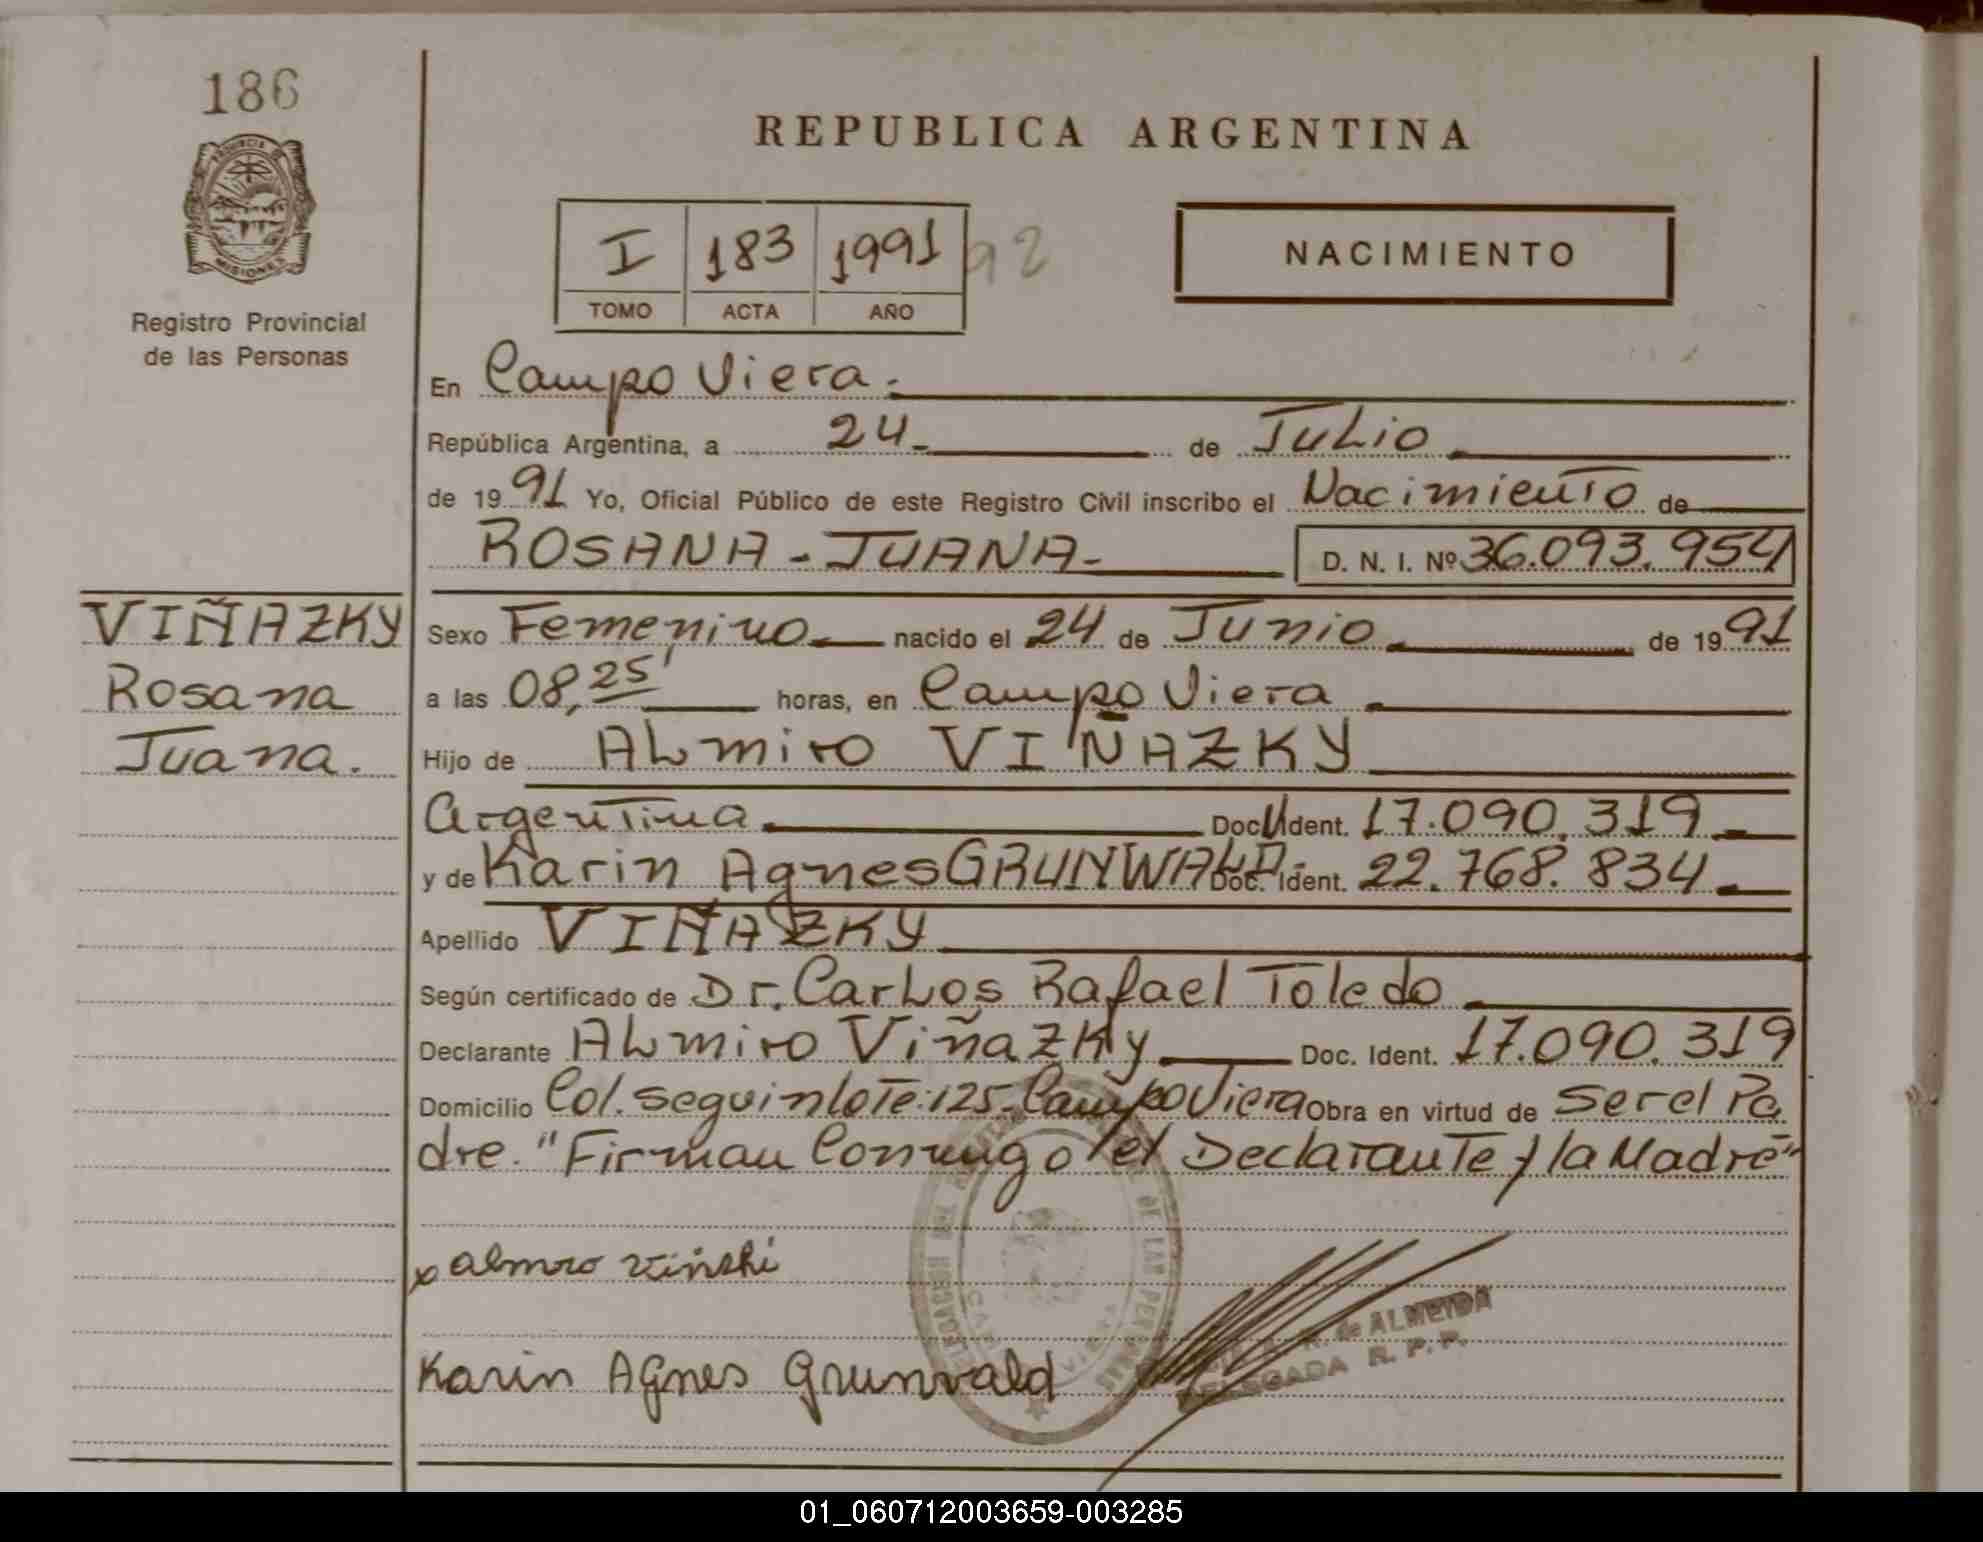 186
PROVINCIA DE
MISIONES
Registro Provincial
de las Personas
REPUBLICA ARGENTINA
I 183 1991 92
TOMO ACTA AÑO
NACIMIENTO
En Campo Viera.
República Argentina, a 24 de Julio
de 1991 Yo, Oficial Público de este Registro Civil inscribo el Nacimiento de
ROSANA - JUANA - D. N. I. Nº 36.093.954
VIÑAZKY
Rosana
Juana.
Sexo Femenino nacido el 24 de Junio de 1991
a las 08,25' horas, en Campo Viera
Hijo de Almiro VIÑAZKY
Argentina Doc. Ident. 17.090.319
y de Karin Agnes GRUNWALD. Doc. Ident. 22.768.834
Apellido VIÑAZKY
Según certificado de Dr. Carlos Rafael Toledo
Declarante Almiro Viñazky Doc. Ident. 17.090.319
Domicilio Col. Seguin lote: 125 - Campo Viera Obra en virtud de Ser el Pa
dre. "Firman Conmigo el Declarante y la Madre"
x almiro
Karin Agnes Grunwald
DE LAS PERSONAS
de ALMEIDA
DELEGADA R. P. P.
01_060712003659-003285